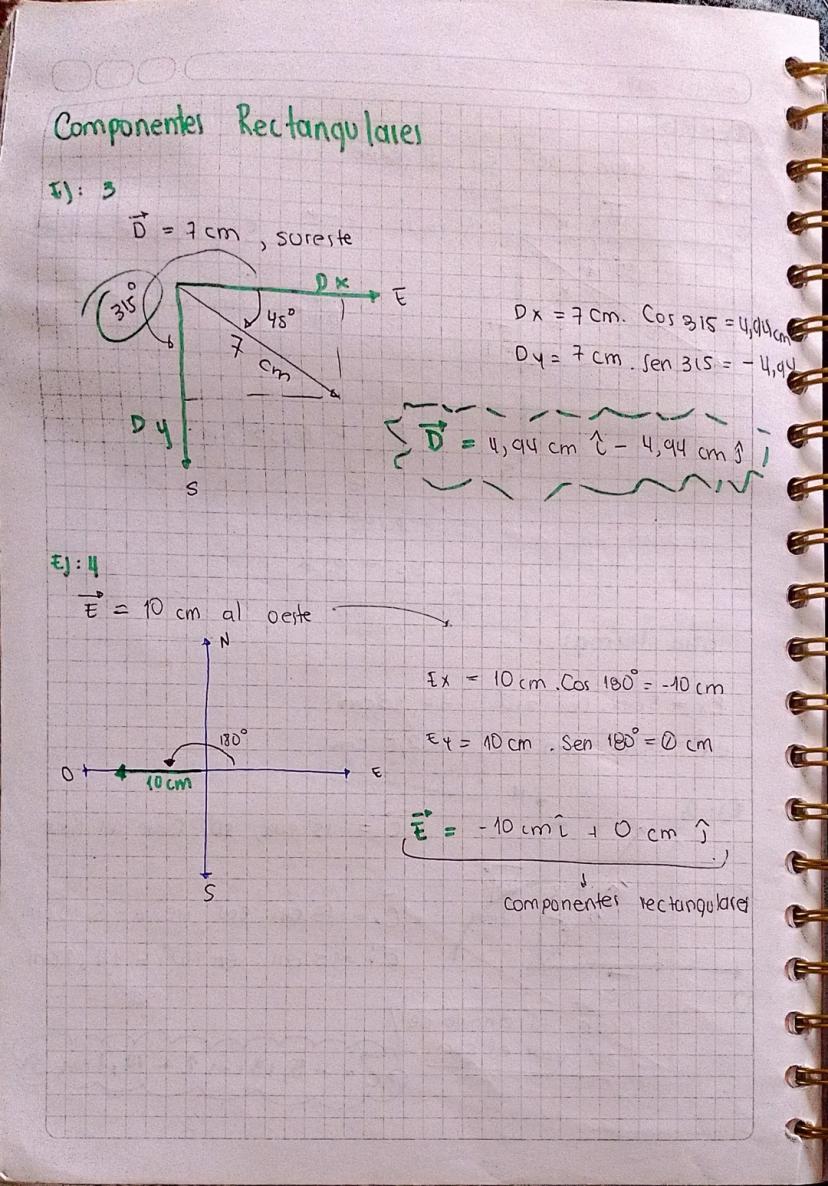 Componentes Rectangulares
Ej: 3
D⃗ = 7 cm, sureste
315°
Dx
E
45°
7 cm
Dy
S
Dx = 7 cm. Cos 315 = 4,94 cm
Dy = 7 cm. sen 315 = -4,94
D⃗ = 4,94 cm î - 4,94 cm ĵ
Ej: 4
E⃗ = 10 cm al oeste
N
180°
O
E
10 cm
S
Ex = 10 cm. Cos 180° = -10 cm
Ey = 10 cm. Sen 180° = 0 cm
E⃗ = -10 cm î + 0 cm ĵ
componentes rectangulares